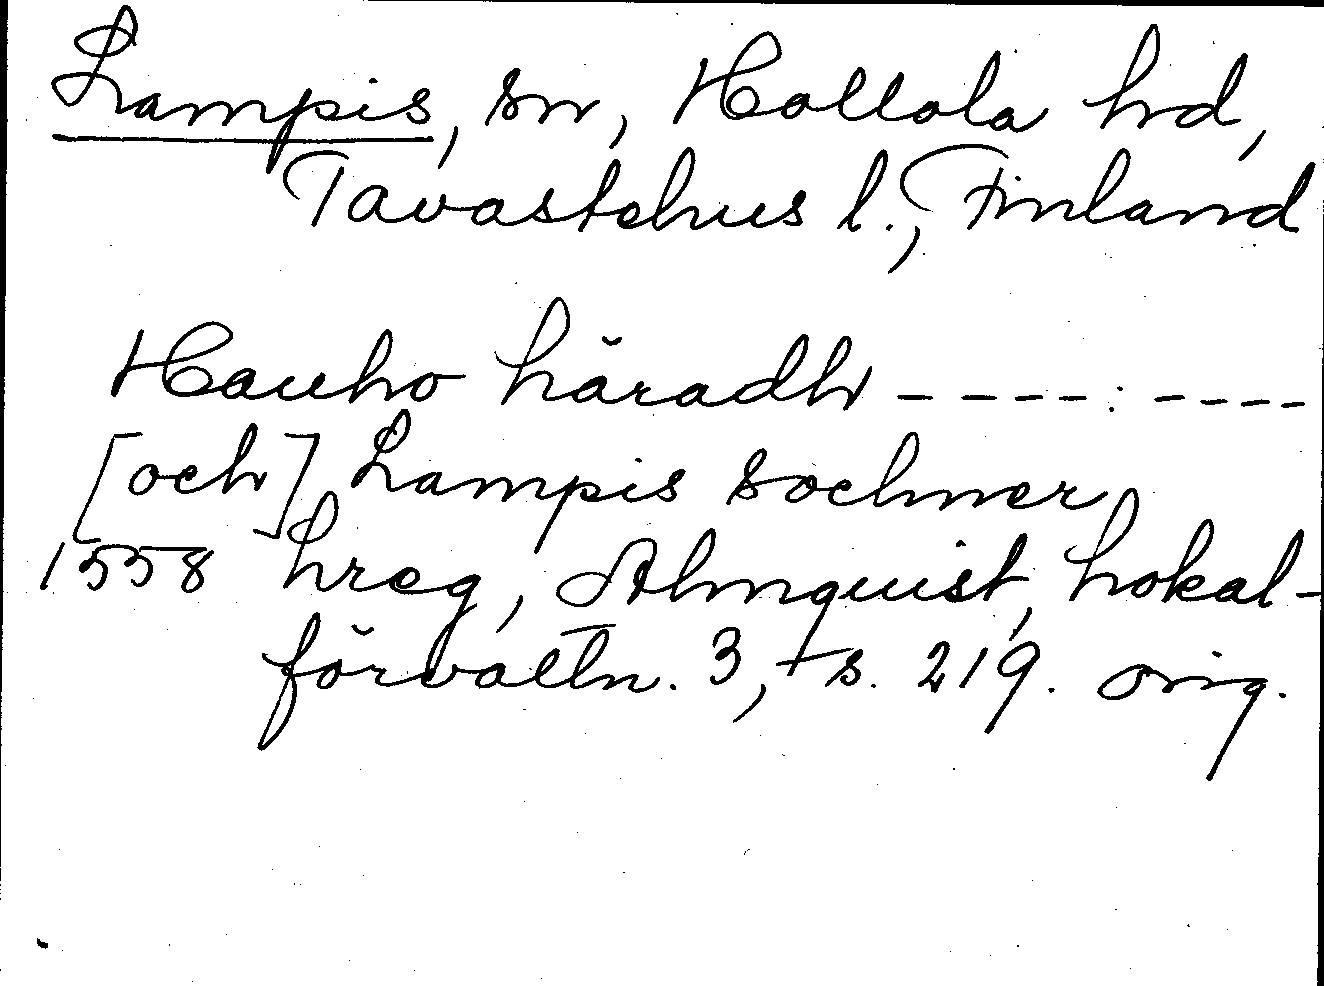 Lampis, sn, Hollola hd,
Tavastehus l., Finland
Hauho häradh - - - - : - - - -
[och] Lampis sochner
1558 hreg, Almquist, Lokal-
förvaltn. 3, s. 219. orig.